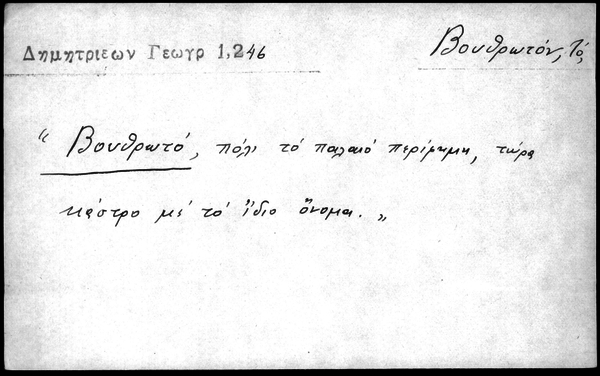 Δημητριεων Γεωγρ 1,246
Βουθρωτόν, Τό,
"Βουθρωτό, πόλι τό παλαιό περίφημη, τώρα
κάστρο μέ τό ἴδιο ὄνομα."